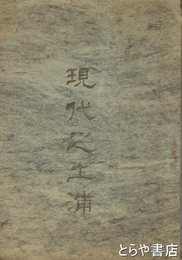 現代之土浦
とらや書店